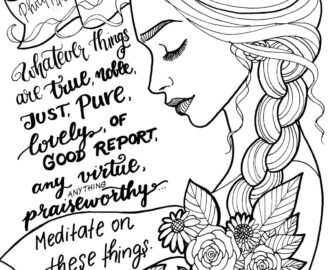 Whatever things
are true, noble,
JUST, PURE,
lovely, OF
GOOD REPORT,
any virtue,
ANYTHING
praiseworthy...
Meditate on
these things.